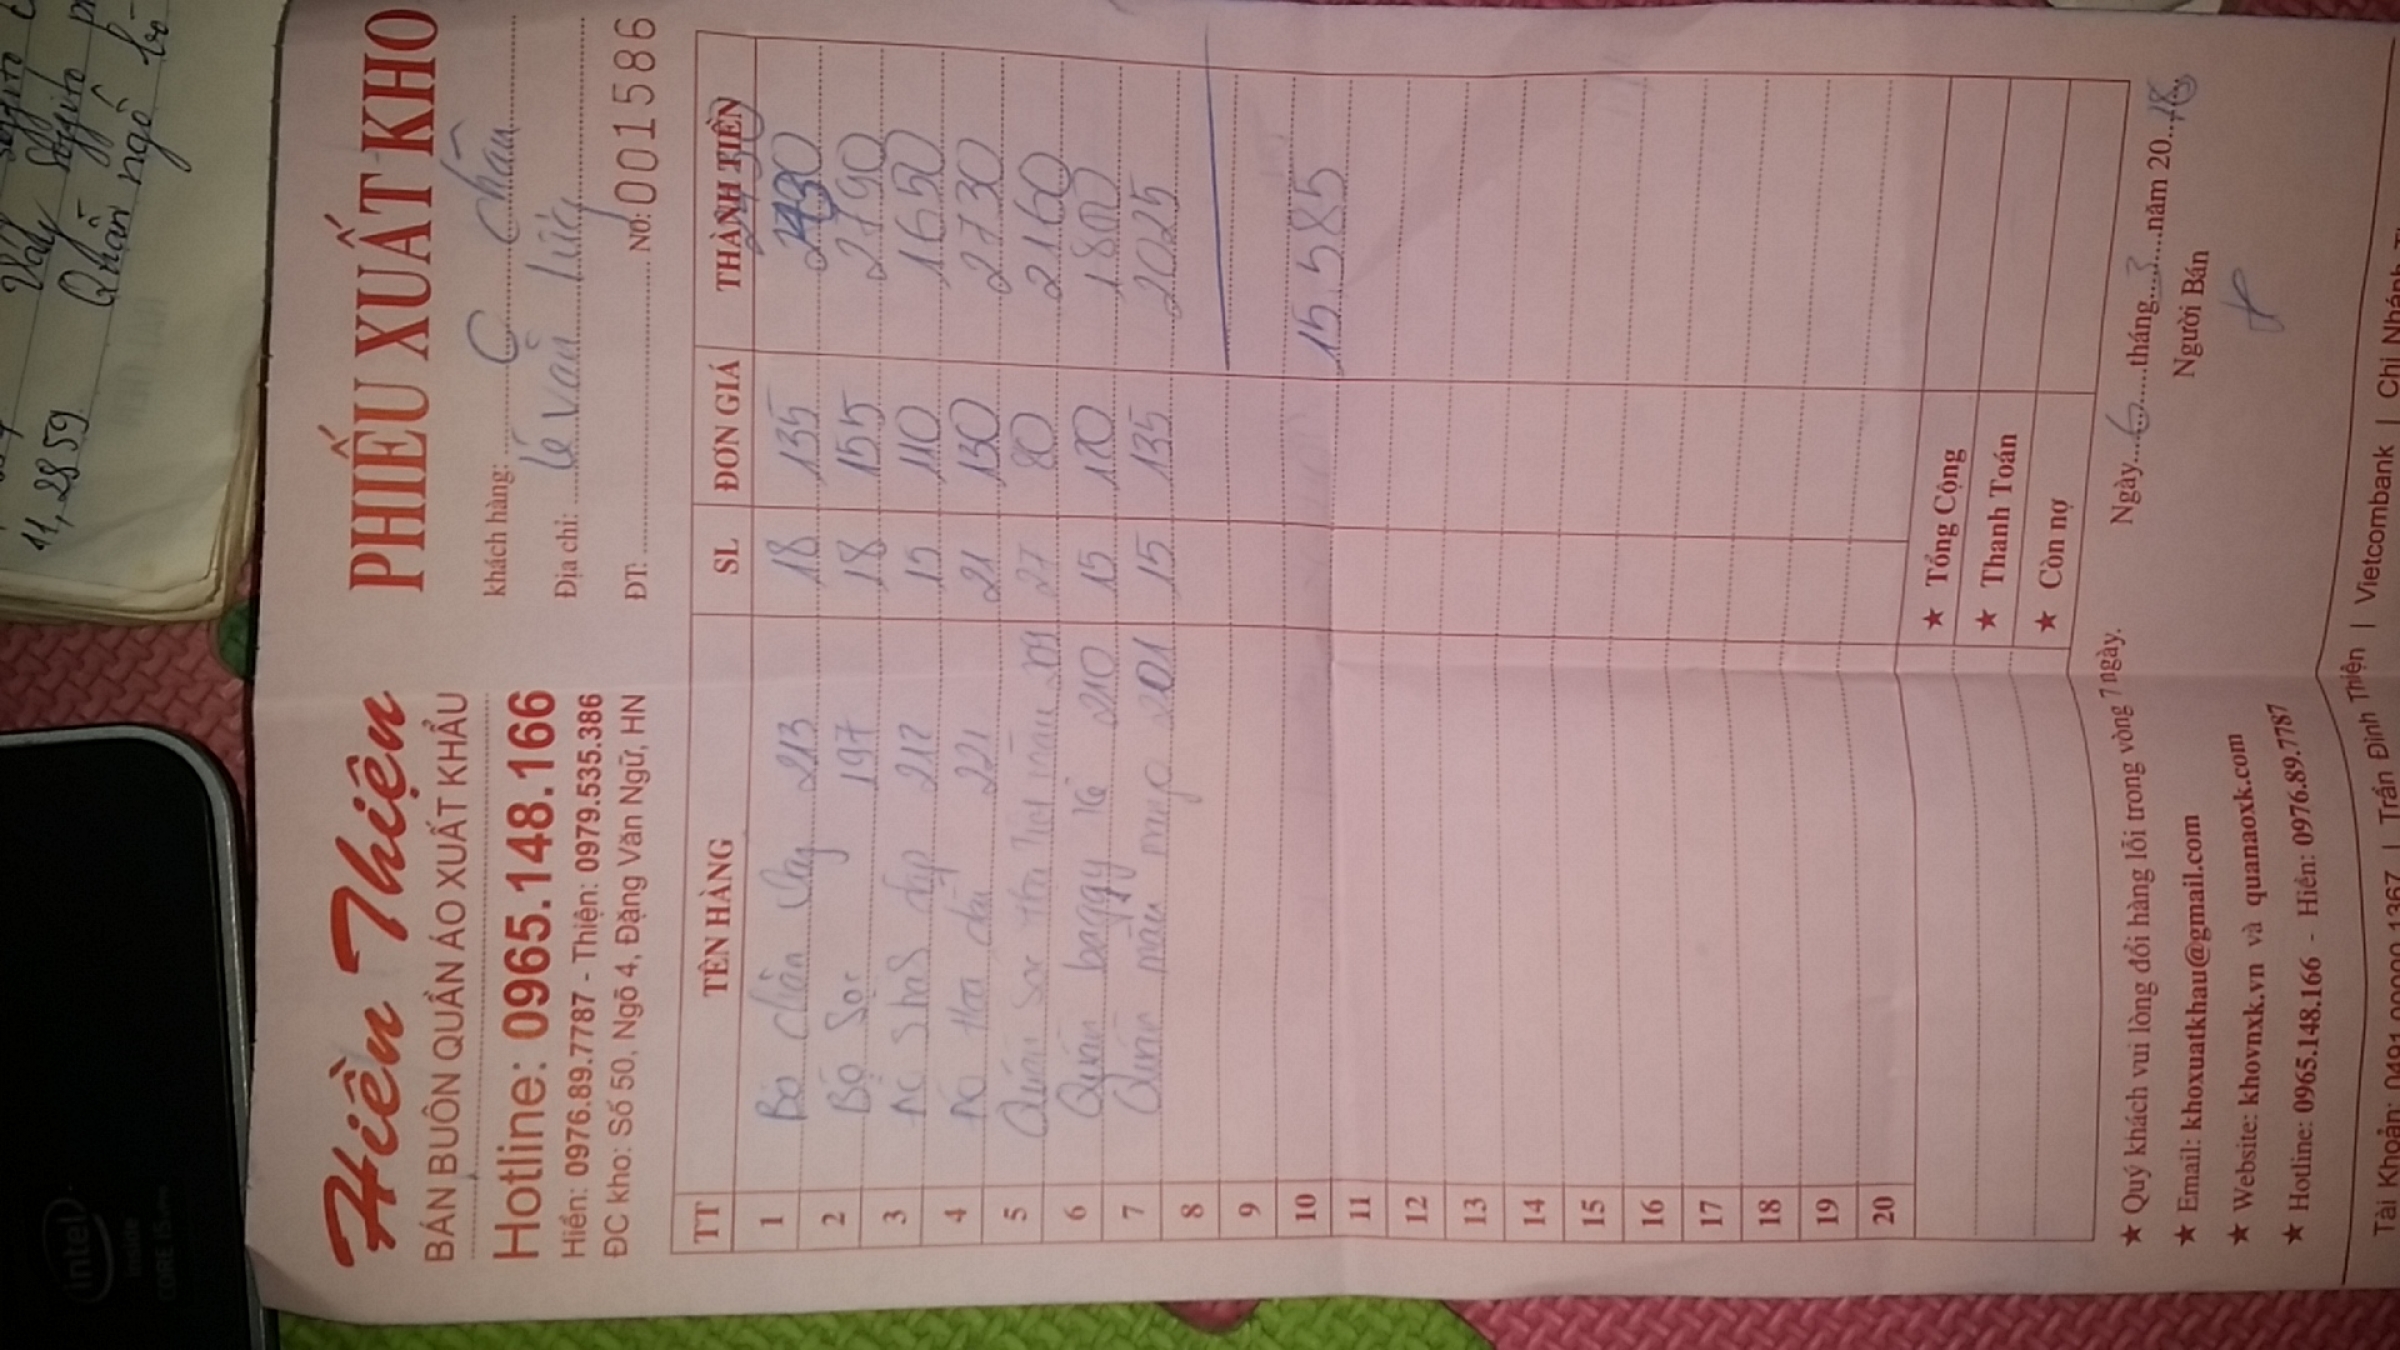 Hiền Thiện
BÁN BUÔN QUẦN ÁO XUẤT KHẨU
Hotline: 0965.148.166
Hiền: 0976.89.7787 - Thiện: 0979.535.386
ĐC kho: Số 50, Ngõ 4, Đặng Văn Ngữ, HN
PHIẾU XUẤT KHO
khách hàng: C Chân
Địa chỉ: lê văn lúy
ĐT: NO: 001586
TT TÊN HÀNG SL ĐƠN GIÁ THÀNH TIỀN
2430
1 Bộ chân váy 213 18 135
2 Bộ Sọc 197 18 155 2790
3 Áo 217 15 110 1650
4 Áo Hoa dài 221 21 130 2730
5 Quần Soc Hoa 27 80 2160
6 Quần baggy kẻ 210 15 120 1800
7 Quần mầu 201 15 135 2025
8
9
10 15.585
11
12
13
14
15
16
17
18
19
20
★ Tổng Cộng
★ Thanh Toán
★ Còn nợ
★ Quý khách vui lòng đổi hàng lỗi trong vòng 7 ngày.
★ Email: khoxuatkhau@gmail.com
★ Website: khovnxk.vn và quanaoxk.com
★ Hotline: 0965.148.166 - Hiền: 0976.89.7787
Ngày 6 tháng 3 năm 2018
Người Bán
Tài Khoản: 0491.00000.1367 | Trần Đình Thiện | Vietcombank | Chi Nhánh
11, 2859
Váy
Quần ngố
intel
inside
CORE i5